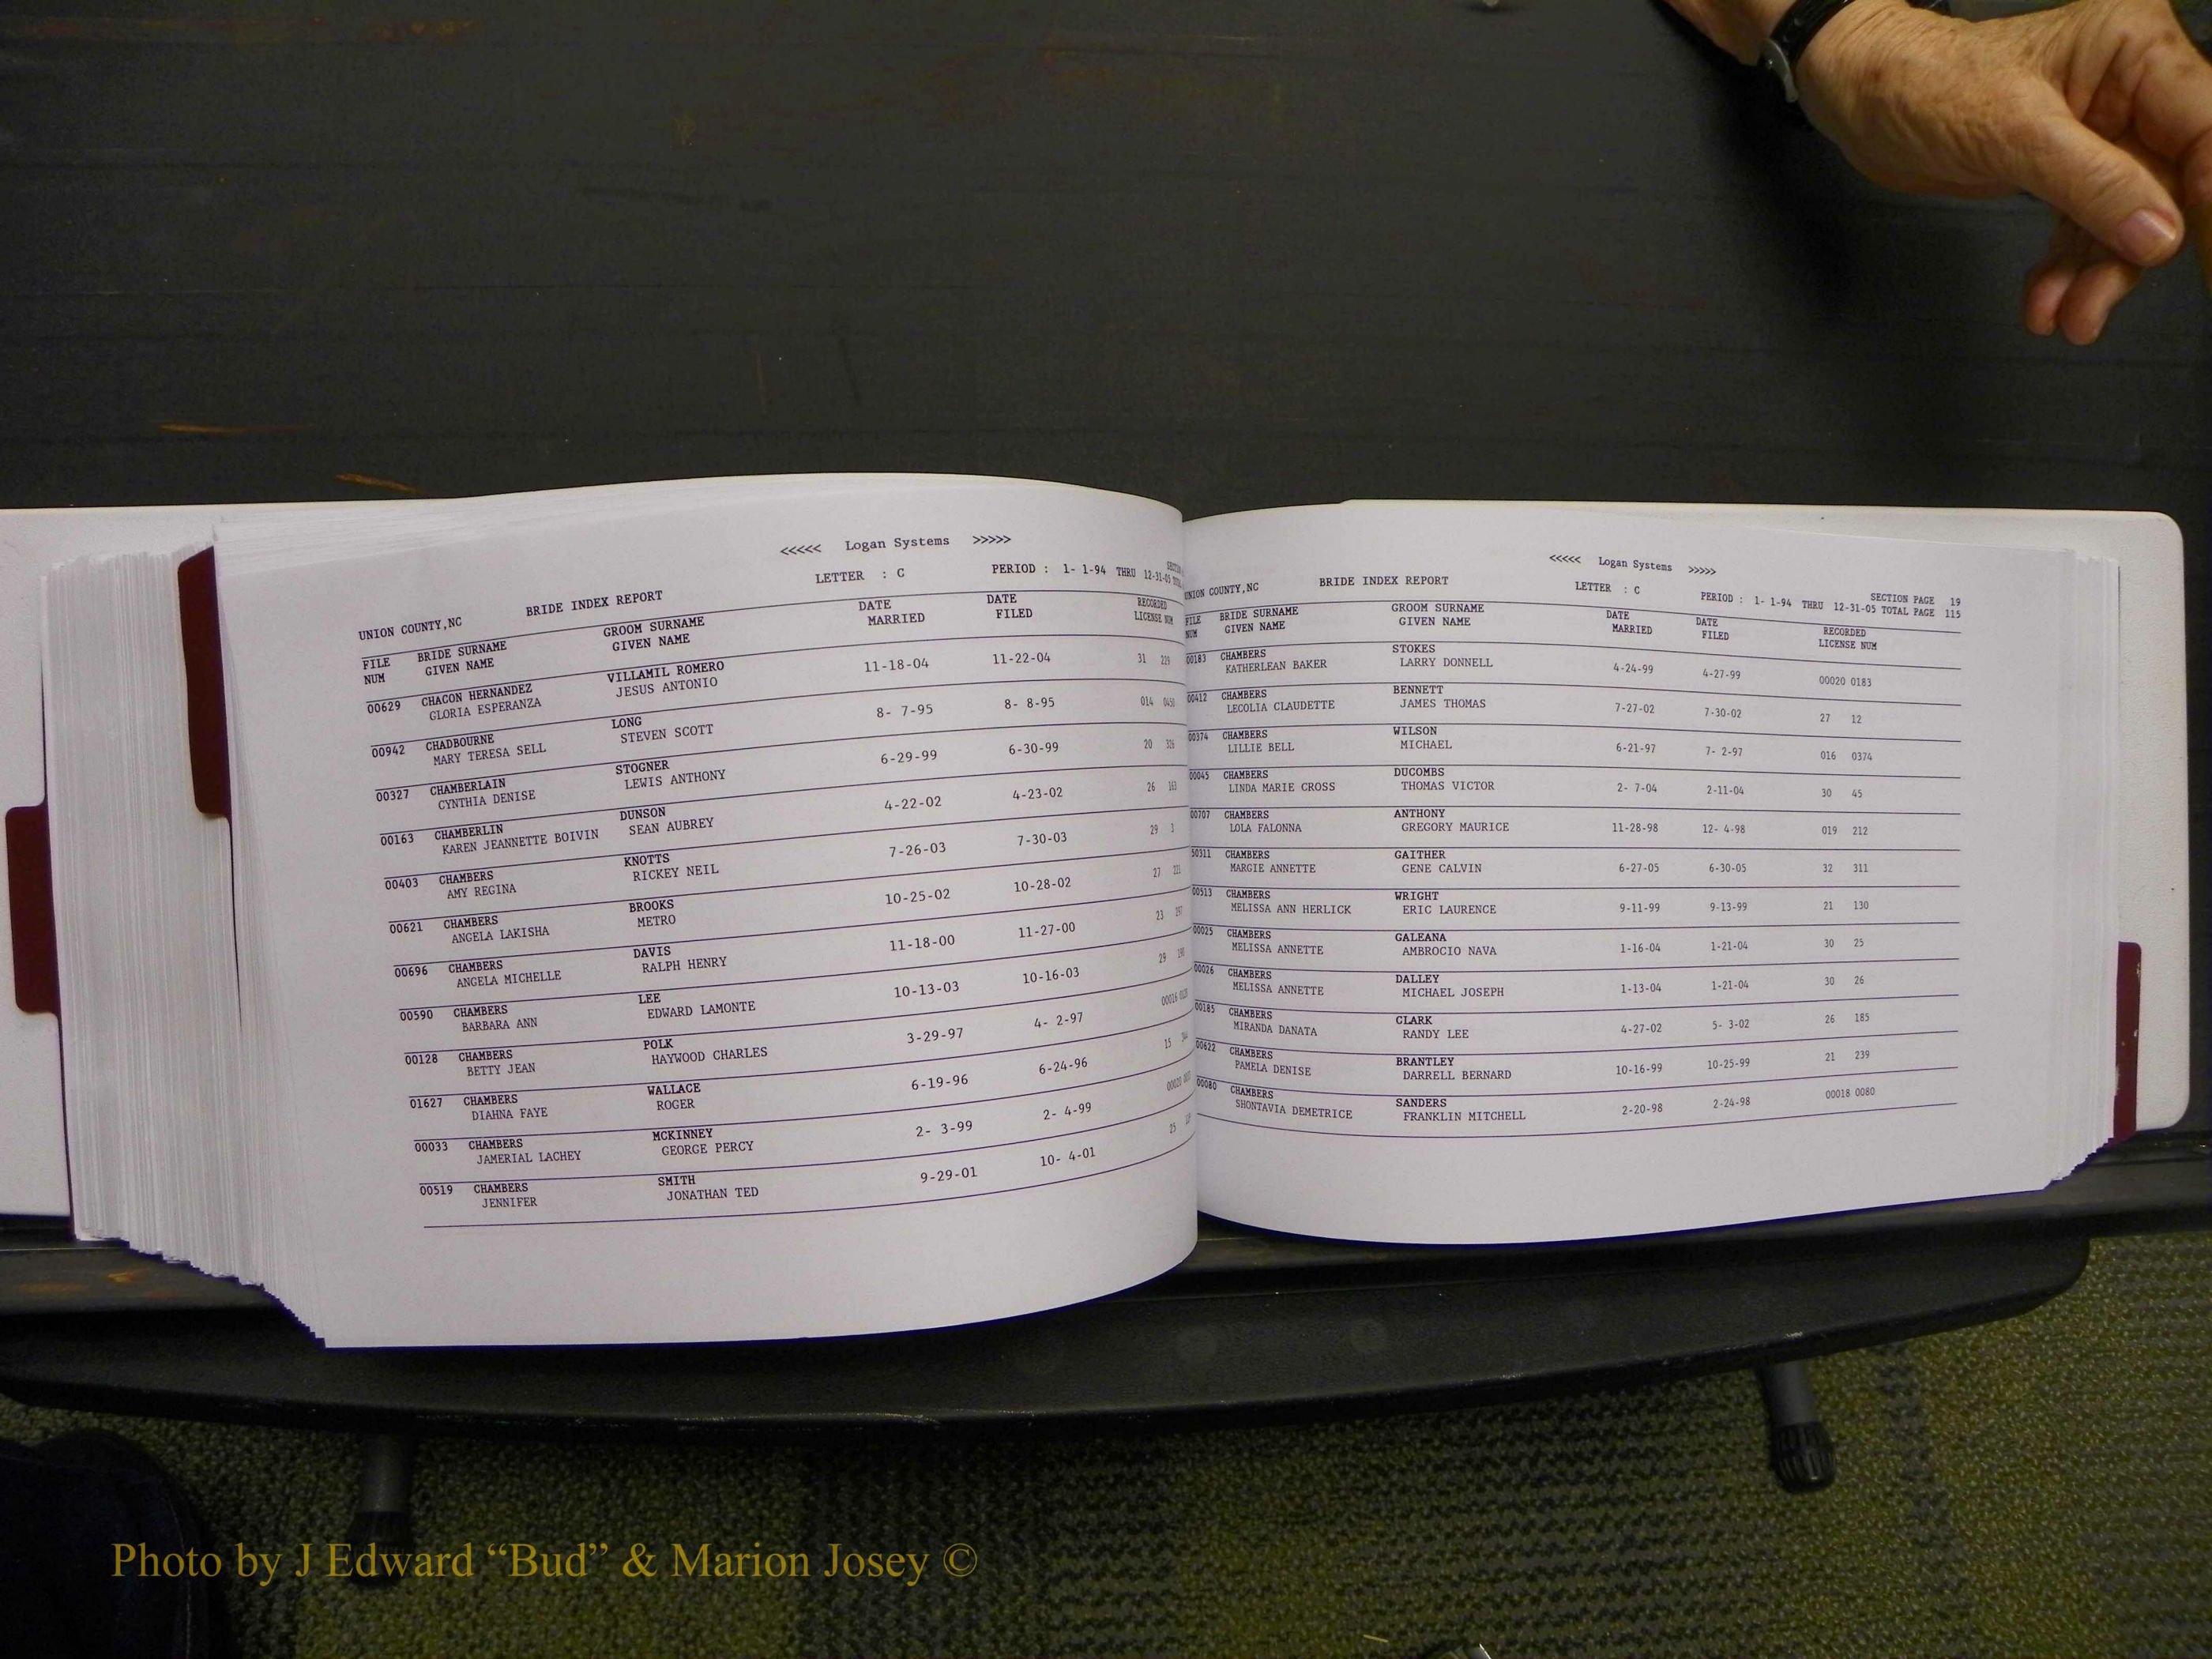 <<<<< Logan Systems >>>>>
UNION COUNTY,NC BRIDE INDEX REPORT LETTER : C PERIOD : 1- 1-94 THRU 12-31-05
FILE BRIDE SURNAME GROOM SURNAME DATE DATE RECORDED
NUM GIVEN NAME GIVEN NAME MARRIED FILED LICENSE NUM
00629 CHACON HERNANDEZ VILLAMIL ROMERO 11-18-04 11-22-04 31 229
GLORIA ESPERANZA JESUS ANTONIO
00942 CHADBOURNE LONG 8- 7-95 8- 8-95 014
MARY TERESA SELL STEVEN SCOTT
00327 CHAMBERLAIN STOGNER 6-29-99 6-30-99 20
CYNTHIA DENISE LEWIS ANTHONY
00163 CHAMBERLIN DUNSON 4-22-02 4-23-02 26 163
KAREN JEANNETTE BOIVIN SEAN AUBREY
00403 CHAMBERS KNOTTS 7-26-03 7-30-03 29 3
AMY REGINA RICKEY NEIL
00621 CHAMBERS BROOKS 10-25-02 10-28-02 27
ANGELA LAKISHA METRO
00696 CHAMBERS DAVIS 11-18-00 11-27-00 23
ANGELA MICHELLE RALPH HENRY
00590 CHAMBERS LEE 10-13-03 10-16-03 29
BARBARA ANN EDWARD LAMONTE
00128 CHAMBERS POLK 3-29-97 4- 2-97 00016
BETTY JEAN HAYWOOD CHARLES
01627 CHAMBERS WALLACE 6-19-96 6-24-96 15
DIAHNA FAYE ROGER
00033 CHAMBERS MCKINNEY 2- 3-99 2- 4-99 00020
JAMERIAL LACHEY GEORGE PERCY
00519 CHAMBERS SMITH 9-29-01 10- 4-01 25
JENNIFER JONATHAN TED
<<<<< Logan Systems >>>>>
UNION COUNTY,NC BRIDE INDEX REPORT LETTER : C PERIOD : 1- 1-94 THRU 12-31-05 SECTION PAGE 19
TOTAL PAGE 115
FILE BRIDE SURNAME GROOM SURNAME DATE DATE RECORDED
NUM GIVEN NAME GIVEN NAME MARRIED FILED LICENSE NUM
00183 CHAMBERS STOKES 4-24-99 4-27-99 00020 0183
KATHERLEAN BAKER LARRY DONNELL
00412 CHAMBERS BENNETT 7-27-02 7-30-02 27 12
LECOLIA CLAUDETTE JAMES THOMAS
00374 CHAMBERS WILSON 6-21-97 7- 2-97 016 0374
LILLIE BELL MICHAEL
00045 CHAMBERS DUCOMBS 2- 7-04 2-11-04 30 45
LINDA MARIE CROSS THOMAS VICTOR
00707 CHAMBERS ANTHONY 11-28-98 12- 4-98 019 212
LOLA FALONNA GREGORY MAURICE
50311 CHAMBERS GAITHER 6-27-05 6-30-05 32 311
MARGIE ANNETTE GENE CALVIN
00513 CHAMBERS WRIGHT 9-11-99 9-13-99 21 130
MELISSA ANN HERLICK ERIC LAURENCE
00025 CHAMBERS GALEANA 1-16-04 1-21-04 30 25
MELISSA ANNETTE AMBROCIO NAVA
00026 CHAMBERS DALLEY 1-13-04 1-21-04 30 26
MELISSA ANNETTE MICHAEL JOSEPH
00185 CHAMBERS CLARK 4-27-02 5- 3-02 26 185
MIRANDA DANATA RANDY LEE
00622 CHAMBERS BRANTLEY 10-16-99 10-25-99 21 239
PAMELA DENISE DARRELL BERNARD
00080 CHAMBERS SANDERS 2-20-98 2-24-98 00018 0080
SHONTAVIA DEMETRICE FRANKLIN MITCHELL
Photo by J Edward “Bud” & Marion Josey ©